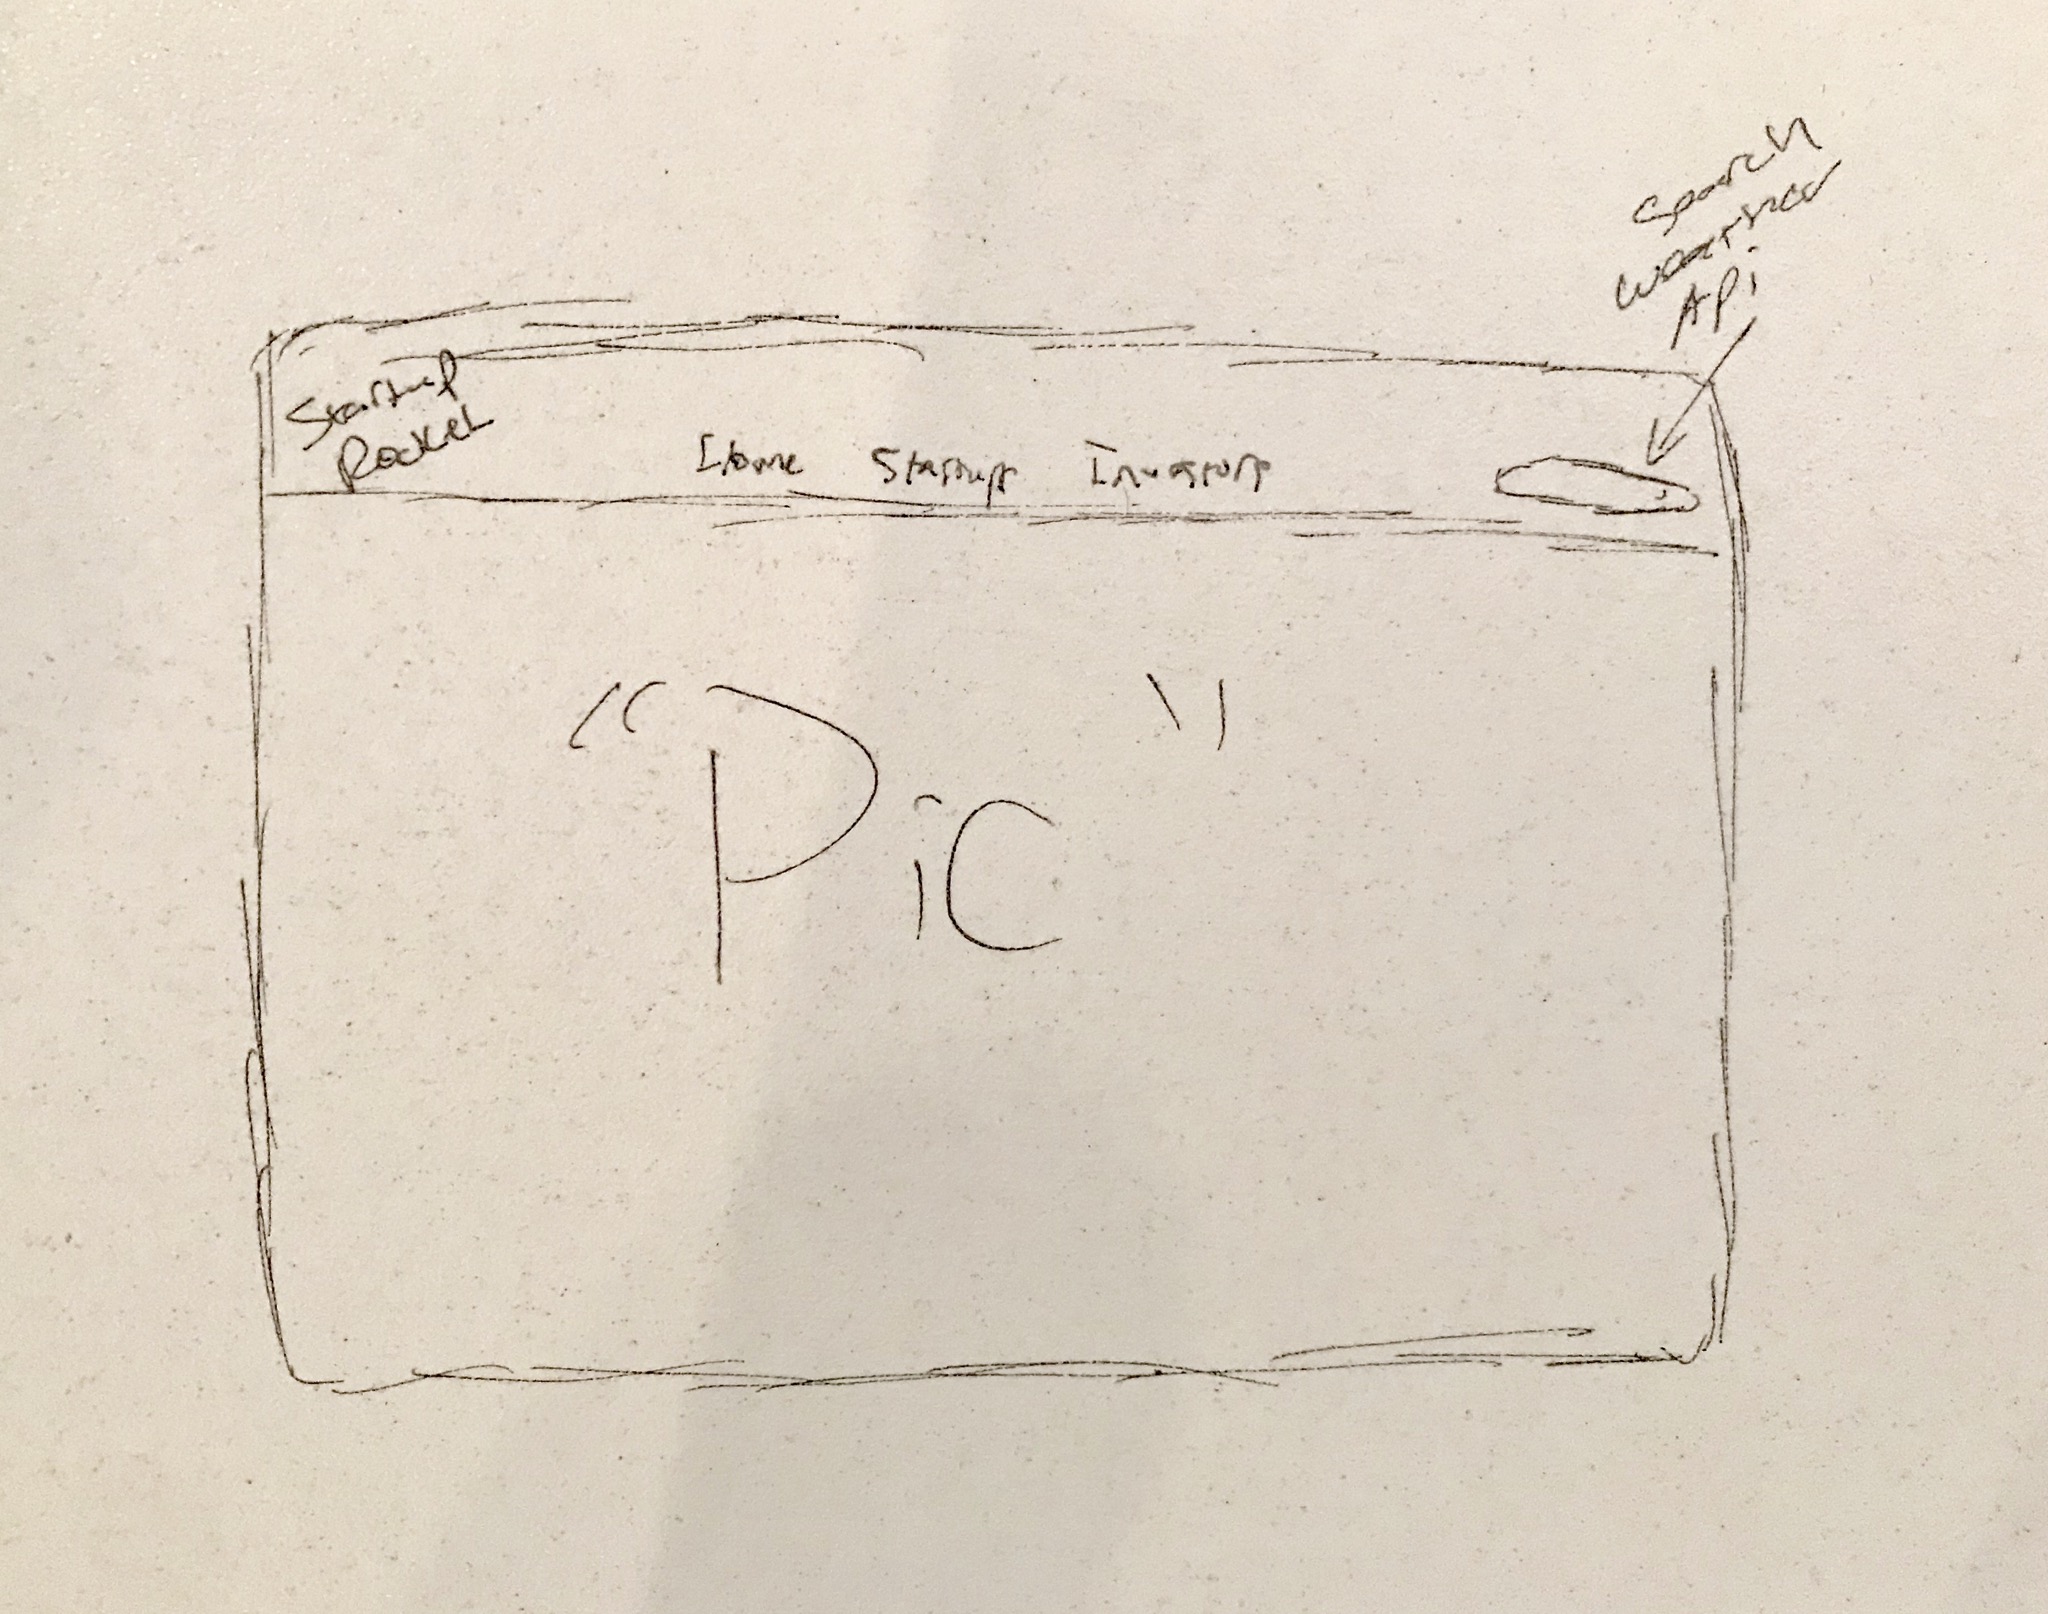 Search
weather
Api
Startup
Rocket
Home Startups Investors
"Pic"